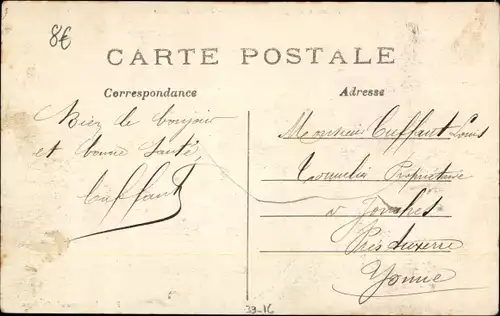 8€
CARTE POSTALE
Correspondance
Adresse
Bien le bonjour
et bonne santé
Cuffaut
Monsieur Cuffaut Louis
Propriétaire
à Jonches
Près Auxerre
Yonne
39-16